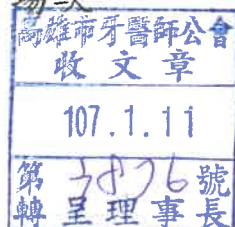 高雄市牙醫師公會
收文章
107.1.11
第3876號
轉呈理事長